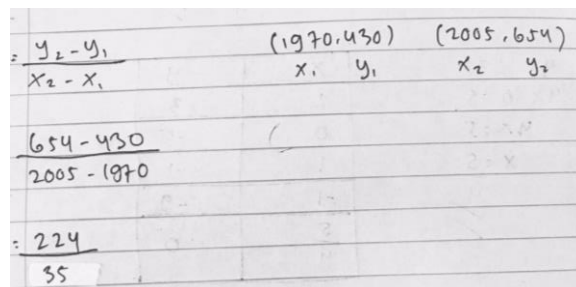 = y₂-y₁ / x₂-x₁ (1970,430) (2005,654)
x₁ y₁ x₂ y₂
654-430 / 2005-1970
= 224 / 35